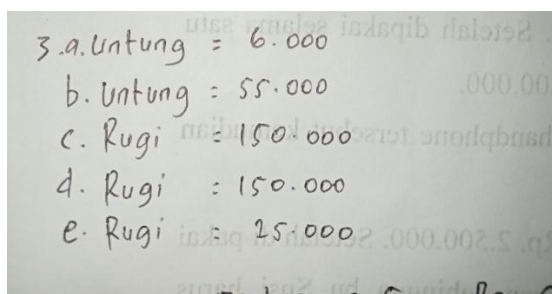 3.a. Untung = 6.000
b. Untung = 55.000
c. Rugi = 150.000
d. Rugi = 150.000
e. Rugi = 25.000